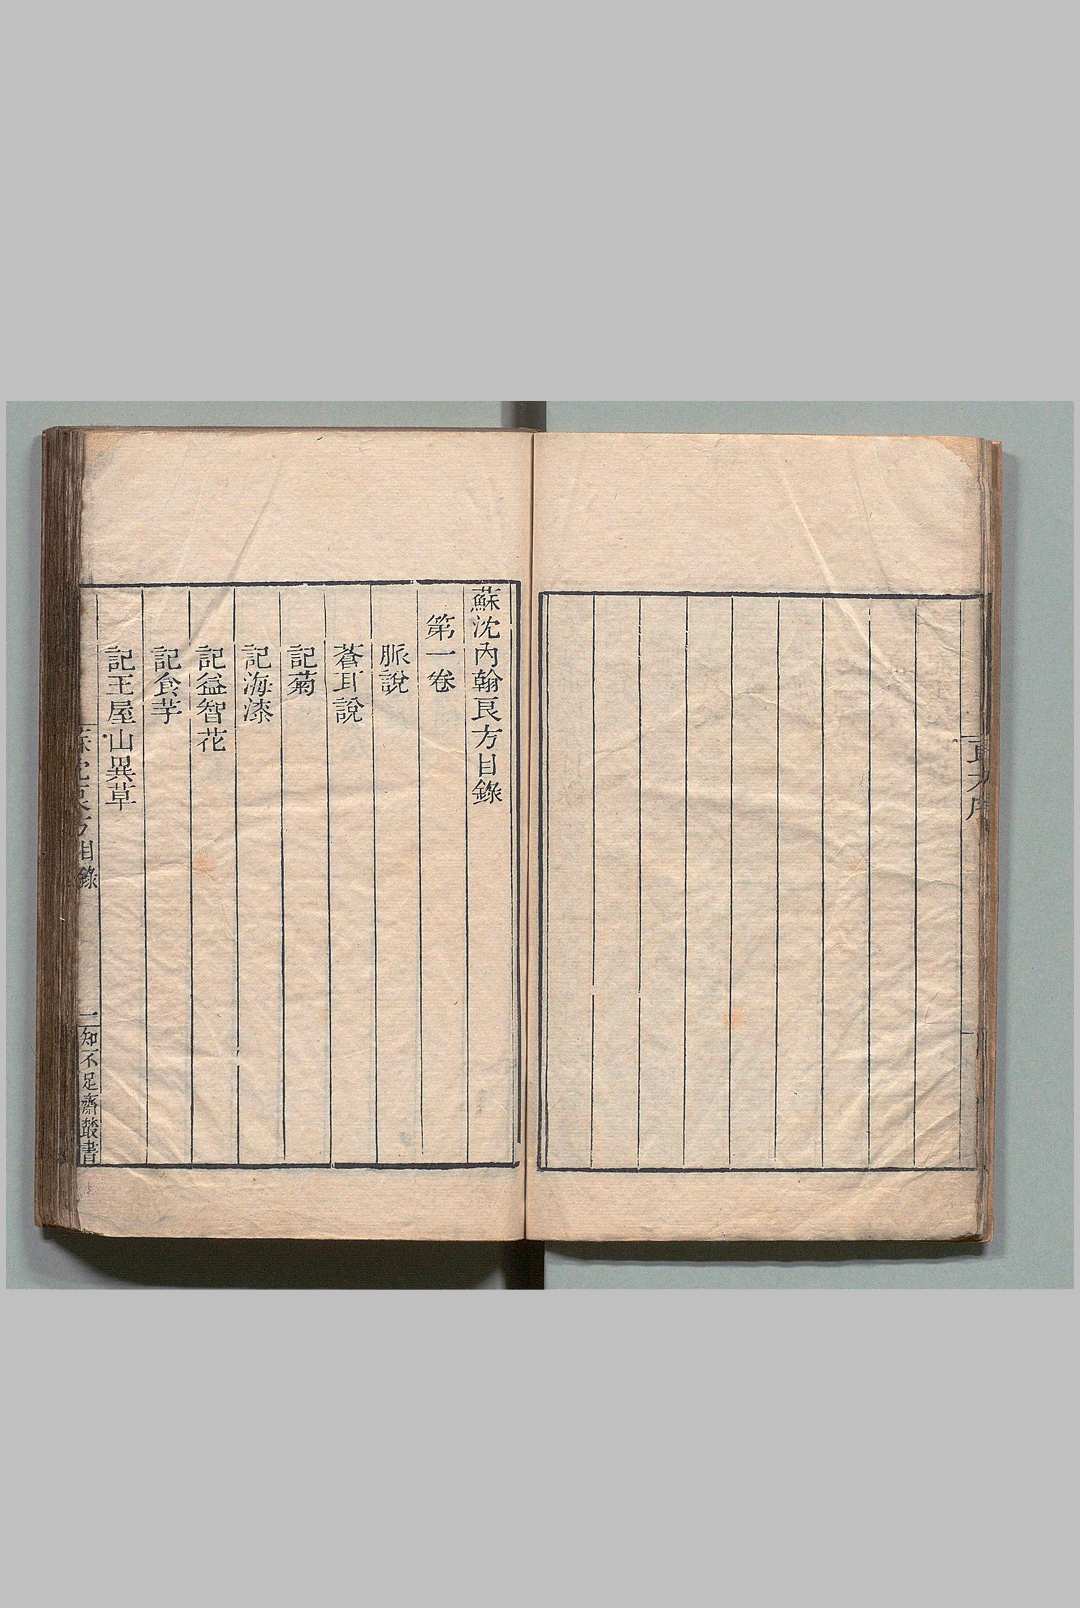 蘇沈內翰良方目錄
第一卷
脈說
蒼耳說
記菊
記海漆
記益智花
記食芋
記王屋山異草
蘇沈良方目錄
一
知不足齋叢書